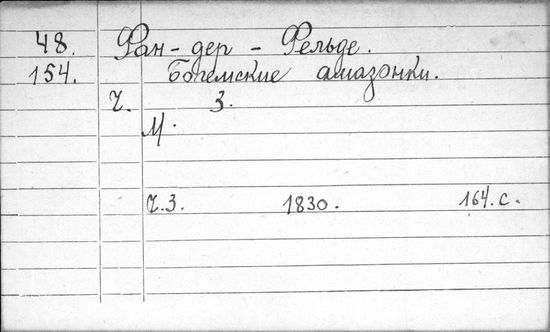 48. Фан-дер-Фельде.
154. Богемские амазонки.
Ч. 3.
М.
Ч.3. 1830. 164.с.